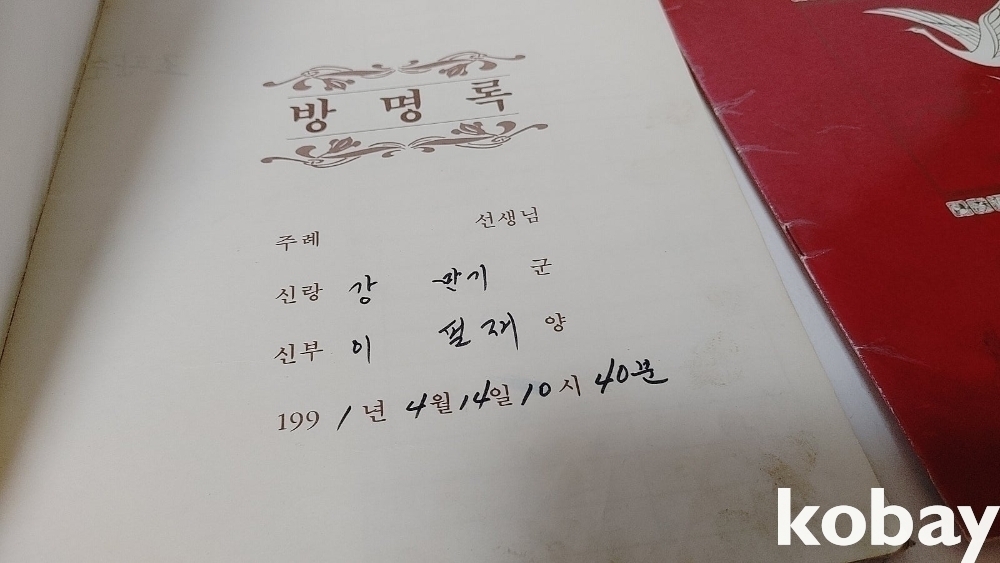 방명록
주례 선생님
신랑 강 만기 군
신부 이 필재 양
1991년 4월 14일 10시 40분
kobay